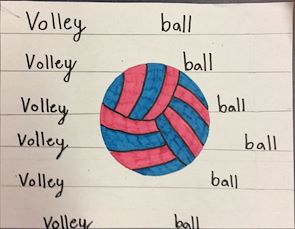 Volley ball
Volley ball
Volley ball
Volley ball
Volley ball
Volley ball